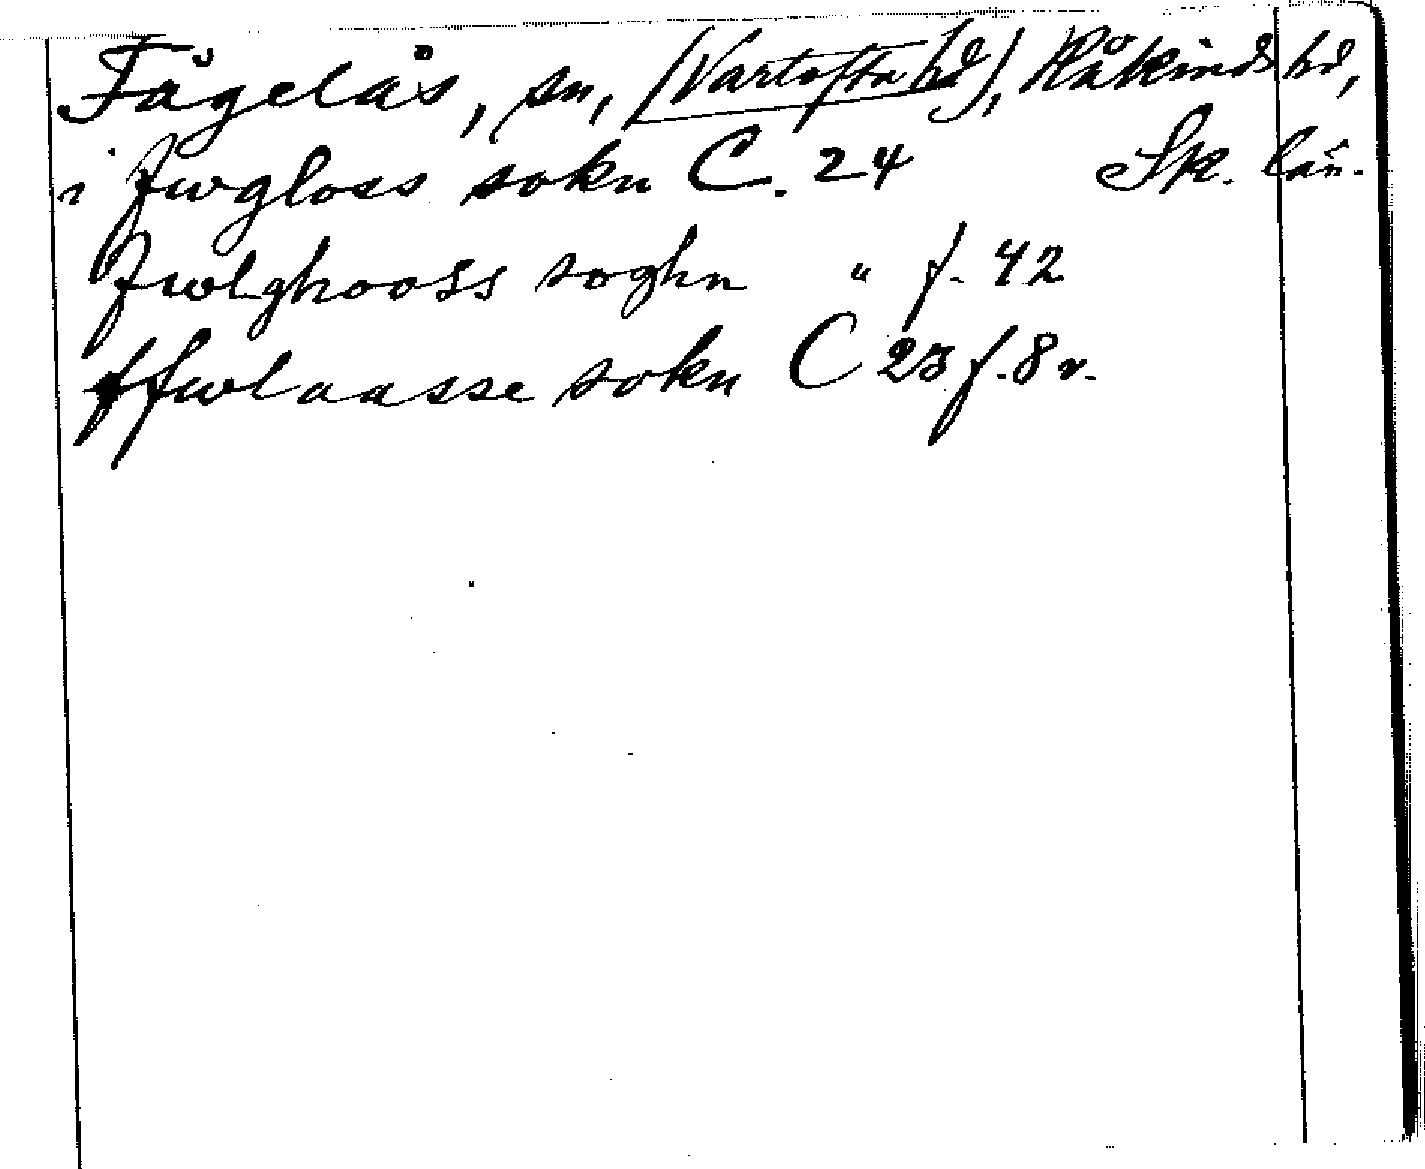 Fågelås, sn, (Vartofta hd), Råkinds hd,
i fwgloss sokn C. 24 Sk. län.
fwlghooss soghn " f. 42
ffwlaasse sokn C 23 f. 8 v.